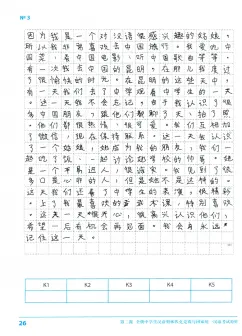 因为我是一个对汉语很感兴趣的姑娘，
所以我非常喜欢去中国旅行。我爱吃中
国菜，看中国电影，听中国歌曲等等。
有一次我去中国的昆明，在那儿我度过
了很愉快的时光。在昆明的这些天中，
有一天我们去了中学跟着中学生的一天
这一天我不会忘记。由于我认识了很
多中国朋友，跟他们聊天了，拍了照
他们都很热情，很可爱。我们互相加
了微信，现在保持联系。这一天我认识
了一个姑娘，她成为我的好朋友，我们一
起吃了饭，一起讨论她学校的
是一个 很 。我见到了很
多口是心非的人，但是她不是这样的。
这天我们还看了中学生的表演，很精彩
。上了我最喜欢的 课，特别喜欢
。这一天 很开心，很高兴认识他们，
希望一后有机会再见面。我会永远
记住这一天。
K1 K2 K3 K4 K5
26